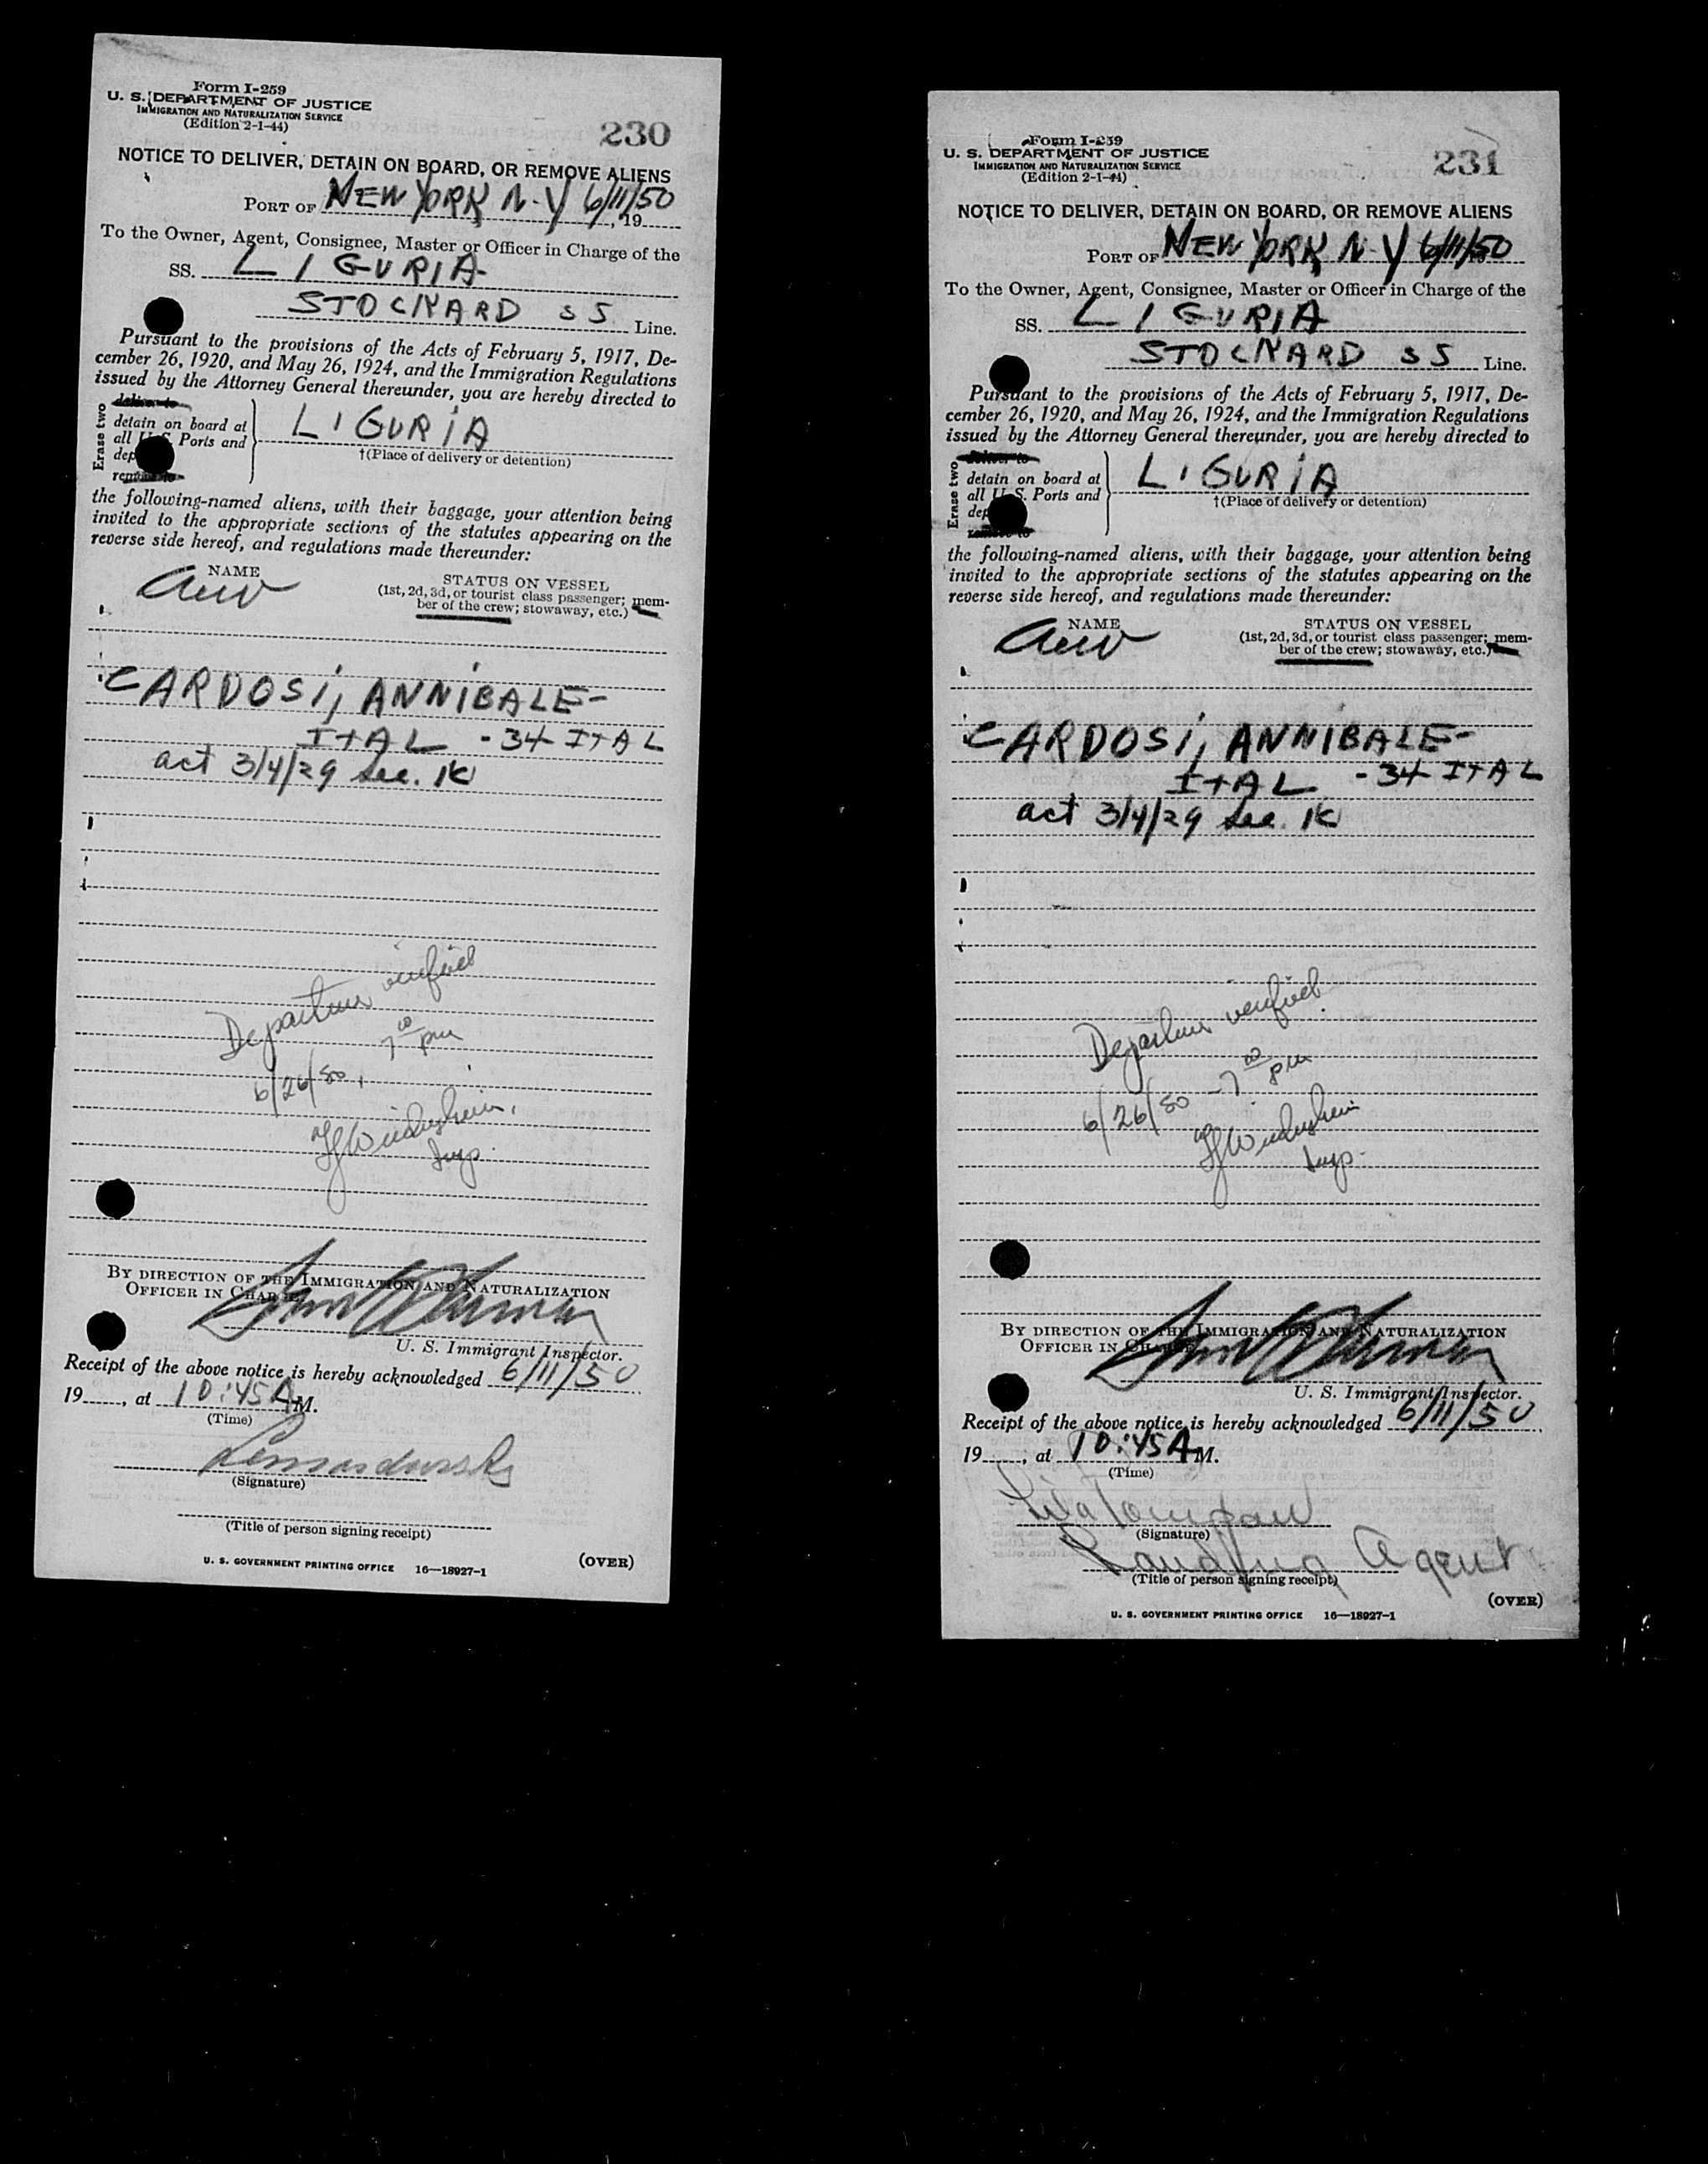 Form I-259
U. S. DEPARTMENT OF JUSTICE
IMMIGRATION AND NATURALIZATION SERVICE
(Edition 2-1-44)
230
NOTICE TO DELIVER, DETAIN ON BOARD, OR REMOVE ALIENS
PORT OF NEW YORK N-Y 6/11/50, 19
To the Owner, Agent, Consignee, Master or Officer in Charge of the
SS. LIGURIA
STOCKARD SS Line.
Pursuant to the provisions of the Acts of February 5, 1917, De-
cember 26, 1920, and May 26, 1924, and the Immigration Regulations
issued by the Attorney General thereunder, you are hereby directed to
Erase two
deliver to
detain on board at
all U.S. Ports and
dep
remove to
LIGURIA
†(Place of delivery or detention)
the following-named aliens, with their baggage, your attention being
invited to the appropriate sections of the statutes appearing on the
reverse side hereof, and regulations made thereunder:
NAME
STATUS ON VESSEL
(1st, 2d, 3d, or tourist class passenger; mem-
ber of the crew; stowaway, etc.)
CARDOSI, ANNIBALE-
ITAL -34 ITAL
act 3/4/29 sec. 1(
Departure verified
7 00 pm
6/26/50
Insp.
BY DIRECTION OF THE IMMIGRATION AND NATURALIZATION
OFFICER IN CHARGE
U. S. Immigrant Inspector.
Receipt of the above notice is hereby acknowledged 6/11/50
19, at 10:45 A M.
(Time)
(Signature)
(Title of person signing receipt)
U. S. GOVERNMENT PRINTING OFFICE 16—18927-1
(OVER)
Form I-259
U. S. DEPARTMENT OF JUSTICE
IMMIGRATION AND NATURALIZATION SERVICE
(Edition 2-1-44)
231
NOTICE TO DELIVER, DETAIN ON BOARD, OR REMOVE ALIENS
PORT OF NEW YORK N-Y 6/11/50
To the Owner, Agent, Consignee, Master or Officer in Charge of the
SS. LIGURIA
STOCKARD SS Line.
Pursuant to the provisions of the Acts of February 5, 1917, De-
cember 26, 1920, and May 26, 1924, and the Immigration Regulations
issued by the Attorney General thereunder, you are hereby directed to
Erase two
deliver to
detain on board at
all U.S. Ports and
dep
remove to
LIGURIA
†(Place of delivery or detention)
the following-named aliens, with their baggage, your attention being
invited to the appropriate sections of the statutes appearing on the
reverse side hereof, and regulations made thereunder:
NAME
STATUS ON VESSEL
(1st, 2d, 3d, or tourist class passenger; mem-
ber of the crew; stowaway, etc.)
CARDOSI, ANNIBALE-
ITAL -34 ITAL
act 3/4/29 sec. 1(
Departure verified
6/26/50 - 7 00 pm
Insp.
BY DIRECTION OF THE IMMIGRATION AND NATURALIZATION
OFFICER IN CHARGE
U. S. Immigrant Inspector.
Receipt of the above notice is hereby acknowledged 6/11/50
19, at 10:45 A M.
(Time)
(Signature)
Landing Agent
(Title of person signing receipt)
(OVER)
U. S. GOVERNMENT PRINTING OFFICE 16—18927-1